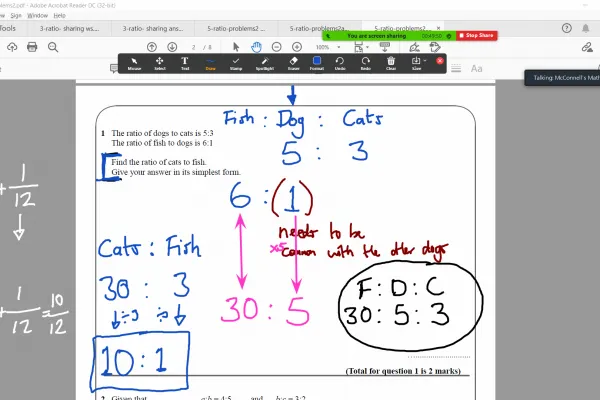 blems2.pdf - Adobe Acrobat Reader DC (32-bit)
Sign Window Help
Tools
3-ratio- sharing ws....
3-ratio- sharing ans...
5-ratio-problems2 ...
5-ratio-problems2a...
5-ratio-problems2...
You are screen sharing
00:49:50
Stop Share
2 / 8
100%
Mouse
Select
Text
Draw
Stamp
Spotlight
Eraser
Format
Undo
Redo
Clear
Save
Aa
Talking: McConnell's Math
Fish : Dog : Cats
5 : 3
1 The ratio of dogs to cats is 5:3
The ratio of fish to dogs is 6:1
Find the ratio of cats to fish.
Give your answer in its simplest form.
6 : (1)
needs to be
common with the other dogs
x5
30 : 5
Cats : Fish
30 : 3
÷3 ÷3
10 : 1
F : D : C
30 : 5 : 3
+ 1/12
1/12 = 10/12
(Total for question 1 is 2 marks)
2 Given that a:b = 4:5 and b:c = 3:2